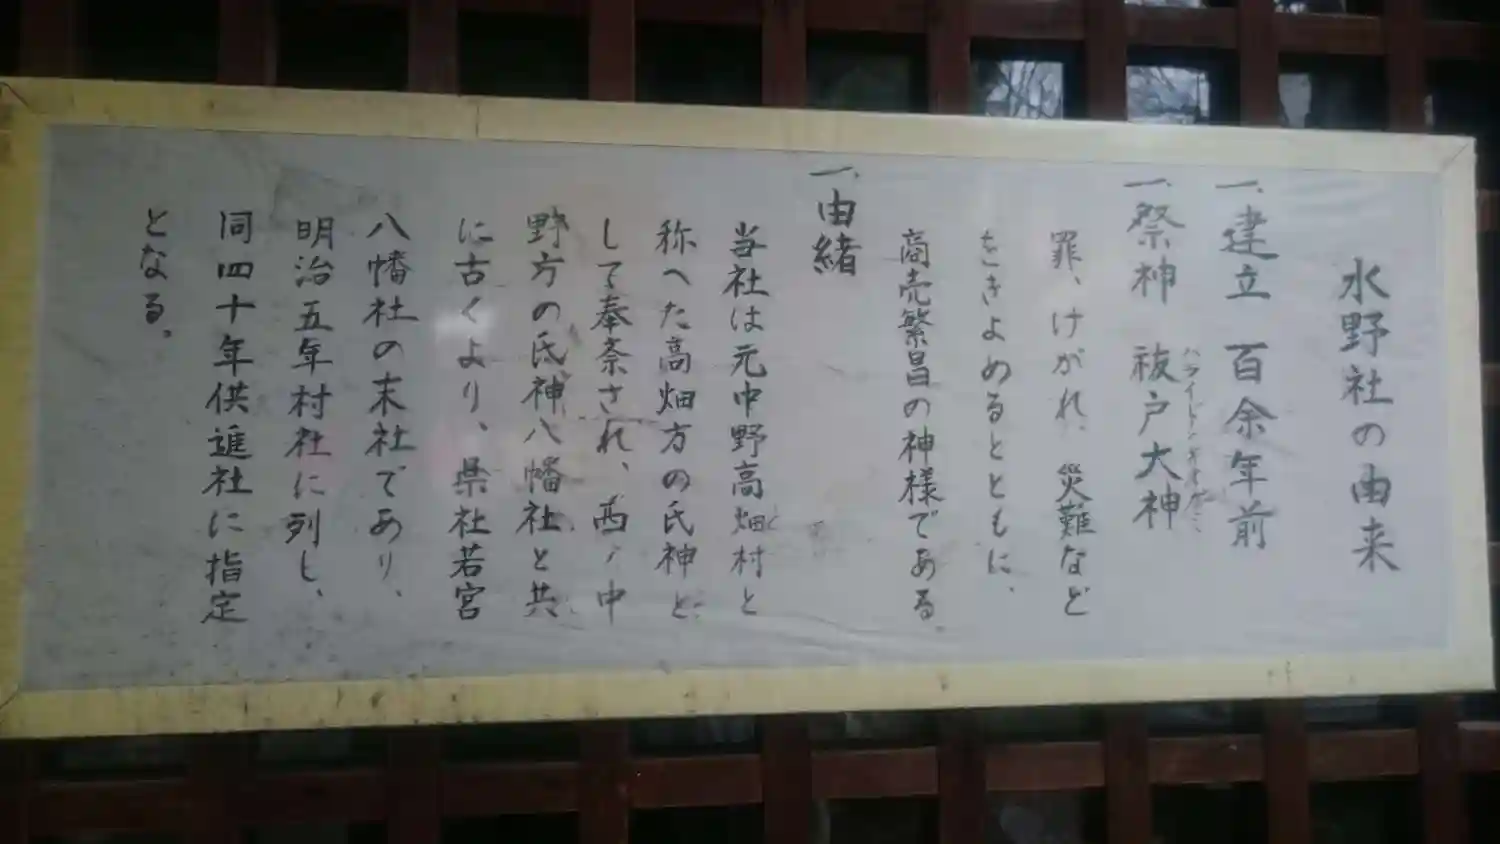 水野社の由来
一、建立 百余年前
一、祭神 祓戸大神
ハライドノオオカミ
罪、けがれ、災難など
をきよめるとともに、
商売繁昌の神様である。
一、由緒
当社は元中野高畑村と
称へた高畑方の氏神と
して奉斎され、西ノ中
野方の氏神八幡社と共
に古くより、県社若宮
八幡社の末社であり、
明治五年村社に列し、
同四十年供進社に指定
となる。